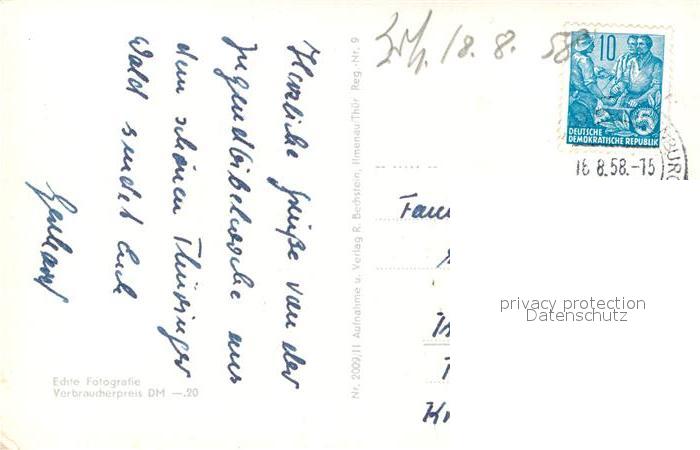 Herzliche Grüße von der
Jugendbibelwoche aus
dem schönen Thüringer
Wald sendet Euch
Gerhard
Echte Fotografie
Verbraucherpreis DM —.20
Nr. 2009/II Aufnahme u. Verlag R. Bechstein, Ilmenau/Thür Reg.-Nr. 9
18. 8. 58
10
5
DEUTSCHE
DEMOKRATISCHE REPUBLIK
BURG
16.8.58.-15
Fam
privacy protection
Datenschutz